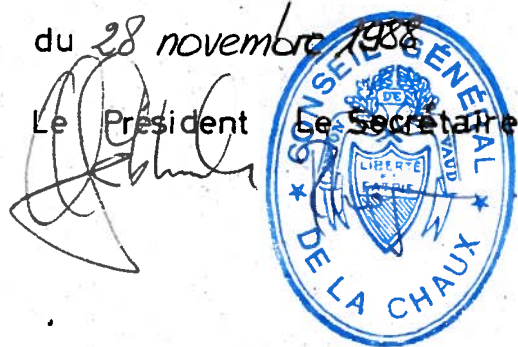 du 28 novembre 1988
Le Président Le Secrétaire
CONSEIL GÉNÉRAL
DE LA CHAUX
CANTON DE VAUD
LIBERTÉ
ET
PATRIE